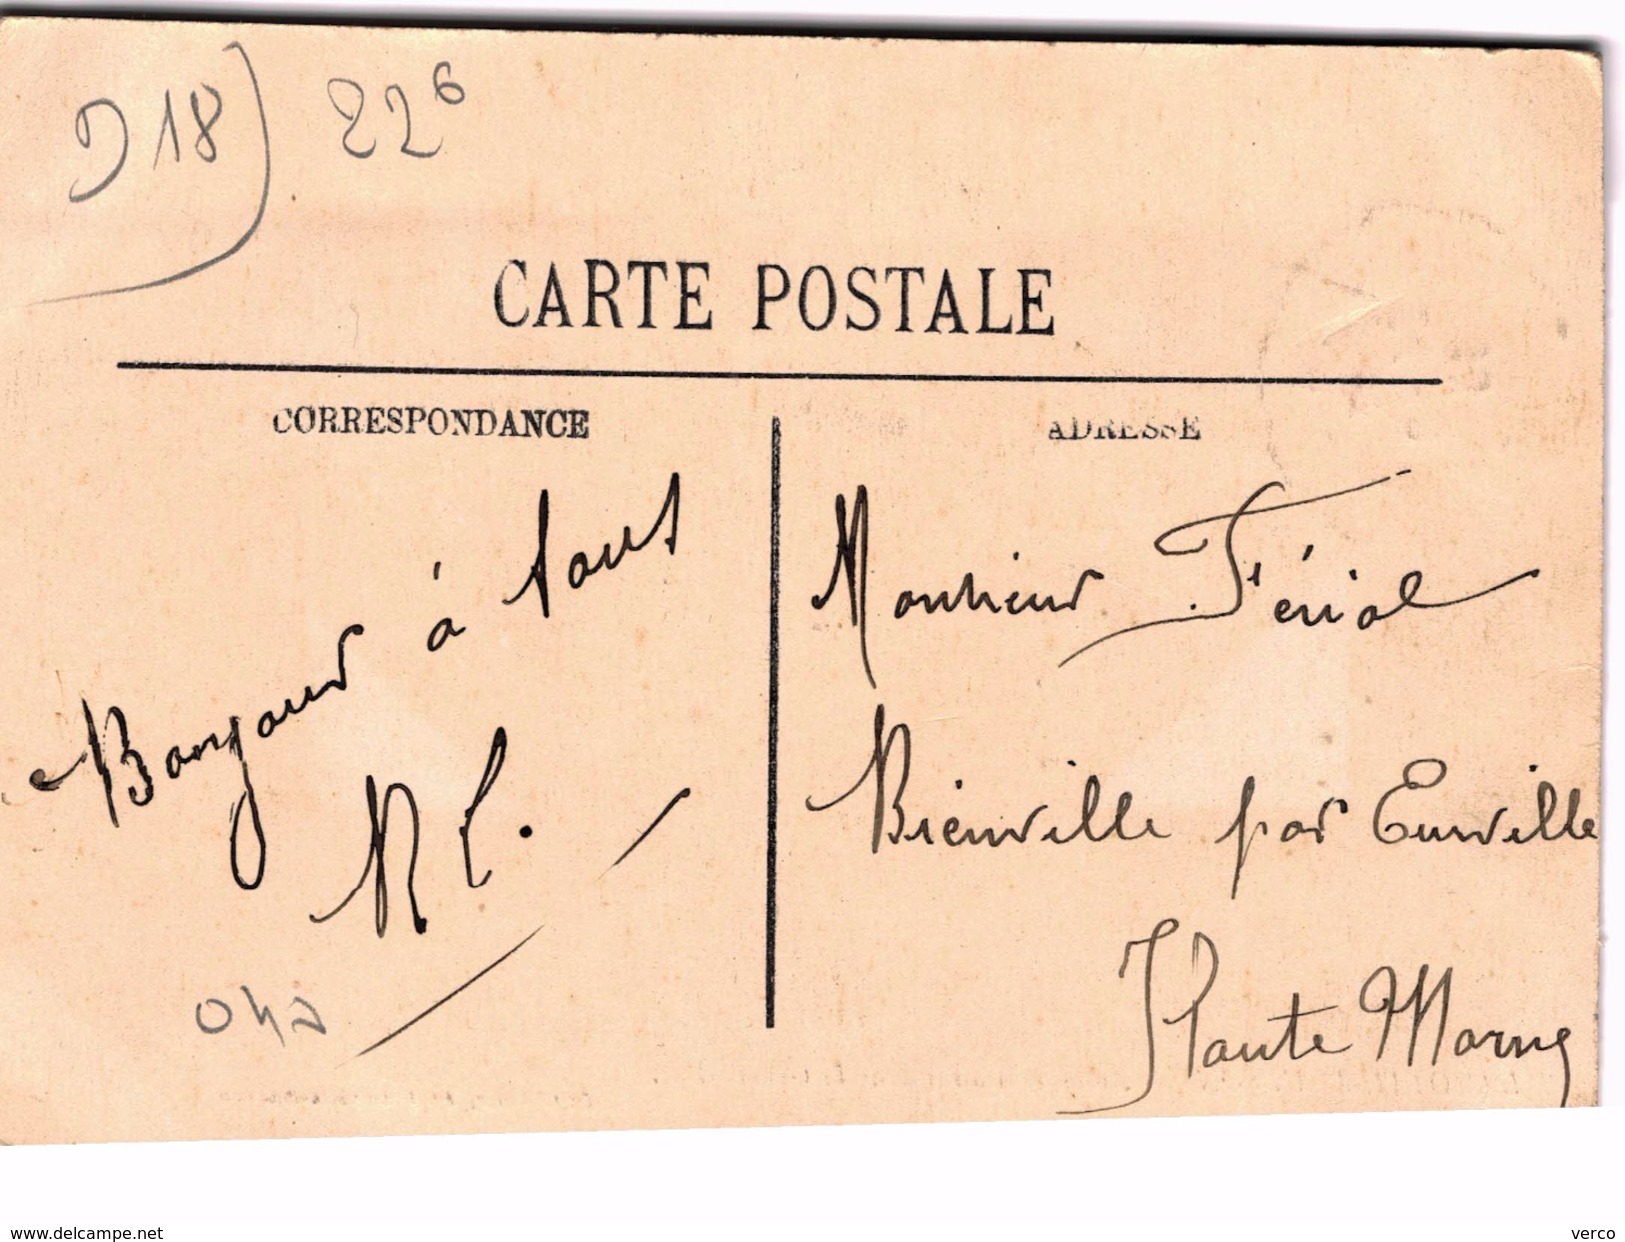 D18) 22⁶
CARTE POSTALE
CORRESPONDANCE
ADRESSE
Bonjour à tous
R L.
Monsieur Fériol
Bienville par Eurville
Haute Marne
www.delcampe.net
verco